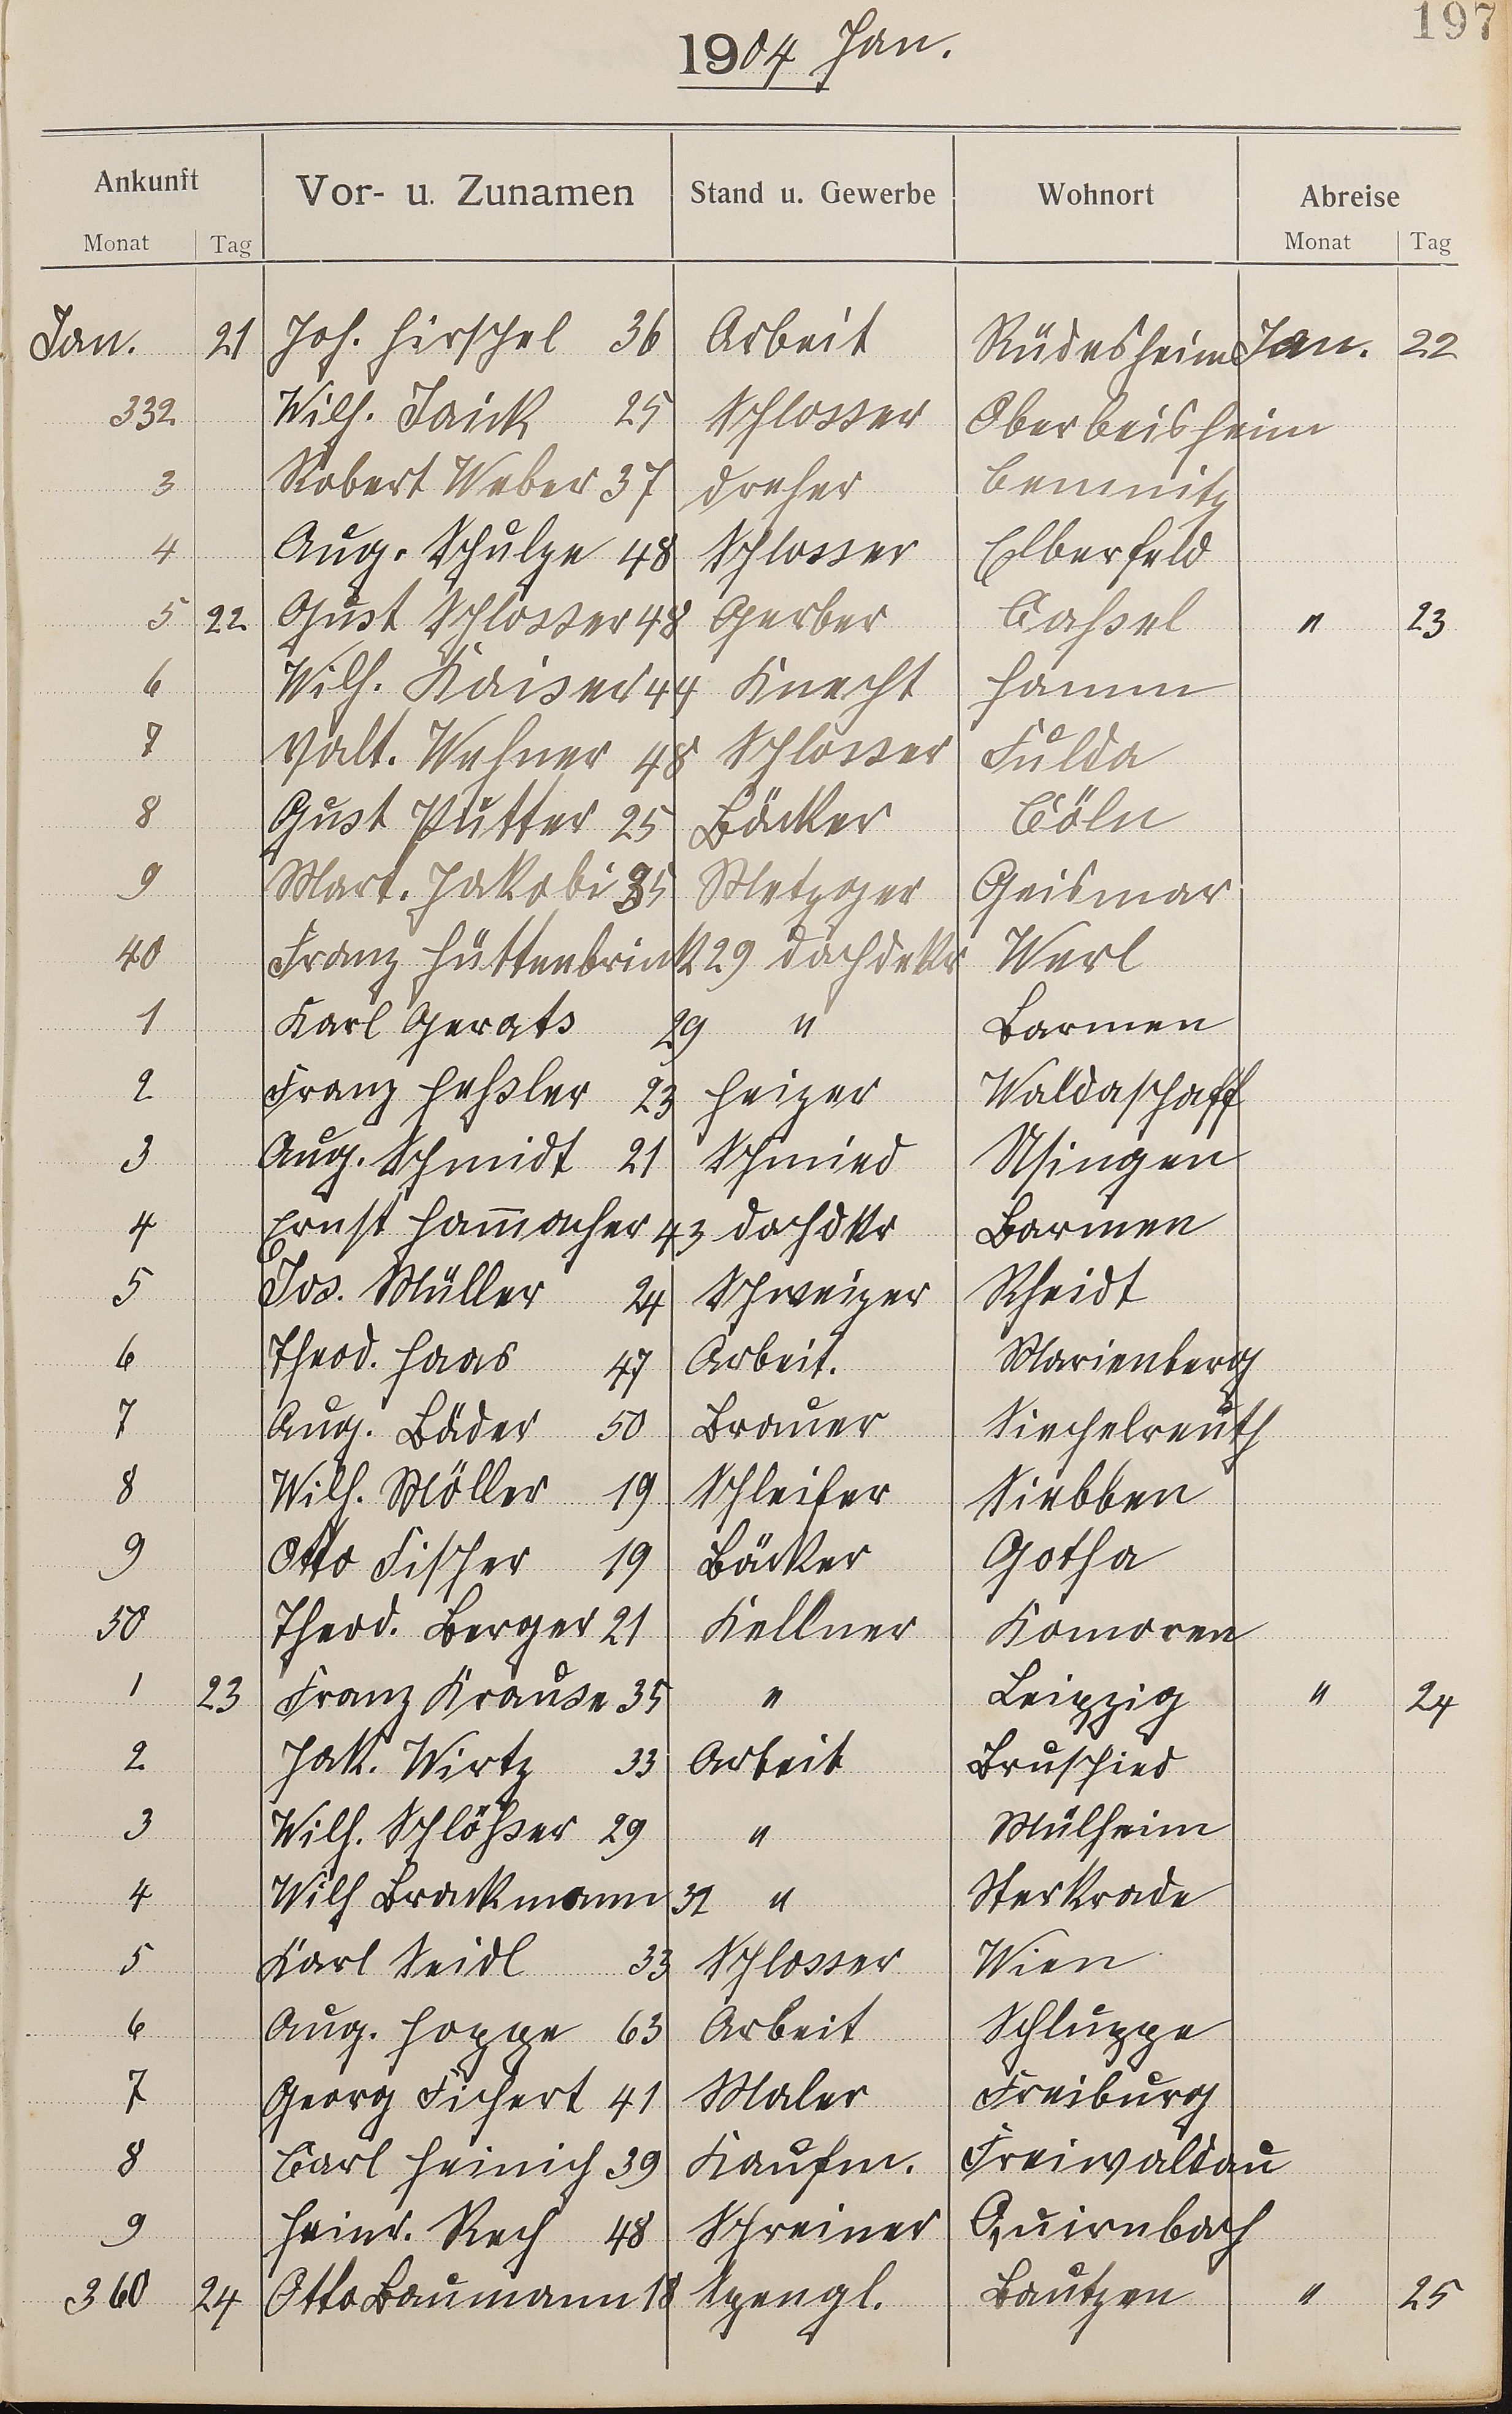 197
1904 Jan.
Ankunft Vor- u. Zunamen Stand u. Gewerbe Wohnort Abreise
Monat Tag Monat Tag
Jan. 21 Joh. Hirschel 36 Arbeit Rüdesheim Jan. 22
332 Wilh. Jaick 25 Schlosser Oberbeisheim
3 Robert Weber 37 Dreher Cemnitz
4 Aug. Schulze 48 Schlosser Elberfeld
5 22 Gust Schlosser 48 Gerber Cassel " 23
6 Wilh. Kaiser 44 Knecht Hamm
7 Valt. Wehner 48 Schlosser Fulda
8 Gust Putter 25 Bäcker Cöln
9 Mart. Jakobi 35 Metzger Geismar
40 Franz Hüttenbrink 29 Dachdekr Werl
1 Karl Gerats 29 " Barmen
2 Franz Heßler 23 Heizer Waldaschaff
3 Aug. Schmidt 21 Schmied Usingen
4 Ernst Ham̅acher 43 Dachdkr Barmen
5 Jos. Müller 24 Schweizer Rheidt
6 Theod. Haas 47 Arbeit. Marienberg
7 Aug. Bäder 50 Brauer Sichelreuth
8 Wilh. Möller 19 Schleifer Siebben
9 Otto Fischer 19 Bäcker Gotha
50 Theod. Berger 21 Kellner Komoren
1 23 Franz Krause 35 " Leipzig " 24
2 Jak. Wirtz 33 Arbeit Bruschied
3 Wilh. Schlößer 29 " Mülheim
4 Wilh Brackmann 32 " Sterkrade
5 Karl Seidl 33 Schlosser Wien
6 Aug. Hoppe 63 Arbeit Schluppe
7 Georg Fichert 41 Maler Freiburg
8 Carl Heinich 39 Kaufm. Freiwaldau
9 Heinr. Rech 48 Schreiner Quirnbach
360 24 Otto Baumann 18 Spengl. Bautzen " 25